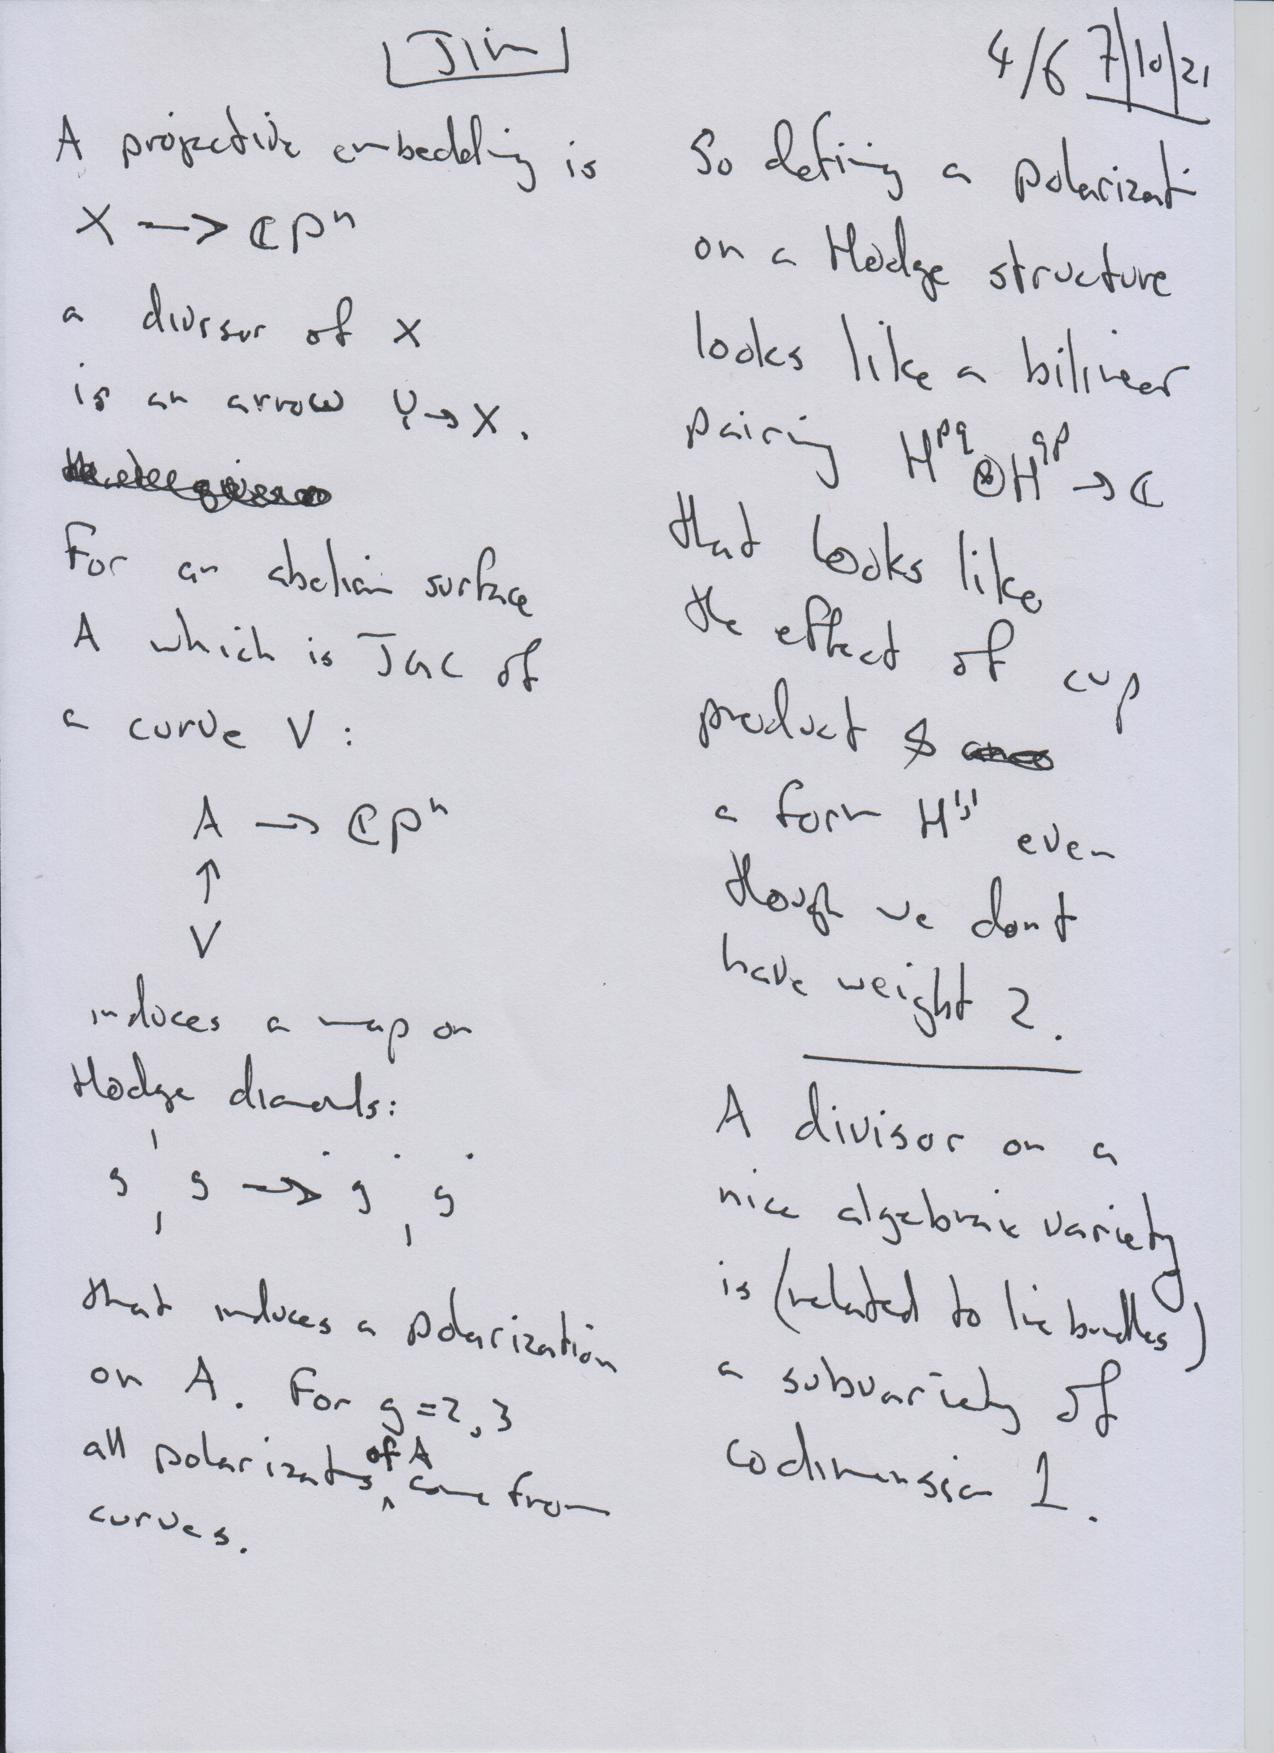 Jim
4/6 7/10/21
A projective embedding is
X → ℂPⁿ
a divisor of X
is an arrow Y → X.
For an abelian surface
A which is Jac of
a curve V:
A → ℂPⁿ
↑
V
induces a map on
Hodge diamonds:
1
g g → g g
1 1
that induces a polarization
on A. For g=2,3
all polarizats of A come from
curves.
So defining a polarizati
on a Hodge structure
looks like a bilinear
pairing H^{pq} ⊗ H^{qp} → ℂ
that looks like
the effect of cup
product &
a form H^{1,1} even
though we dont
have weight 2.
A divisor on a
nice algebraic variety
is (related to line bundles)
a subvariety of
codimension 1.